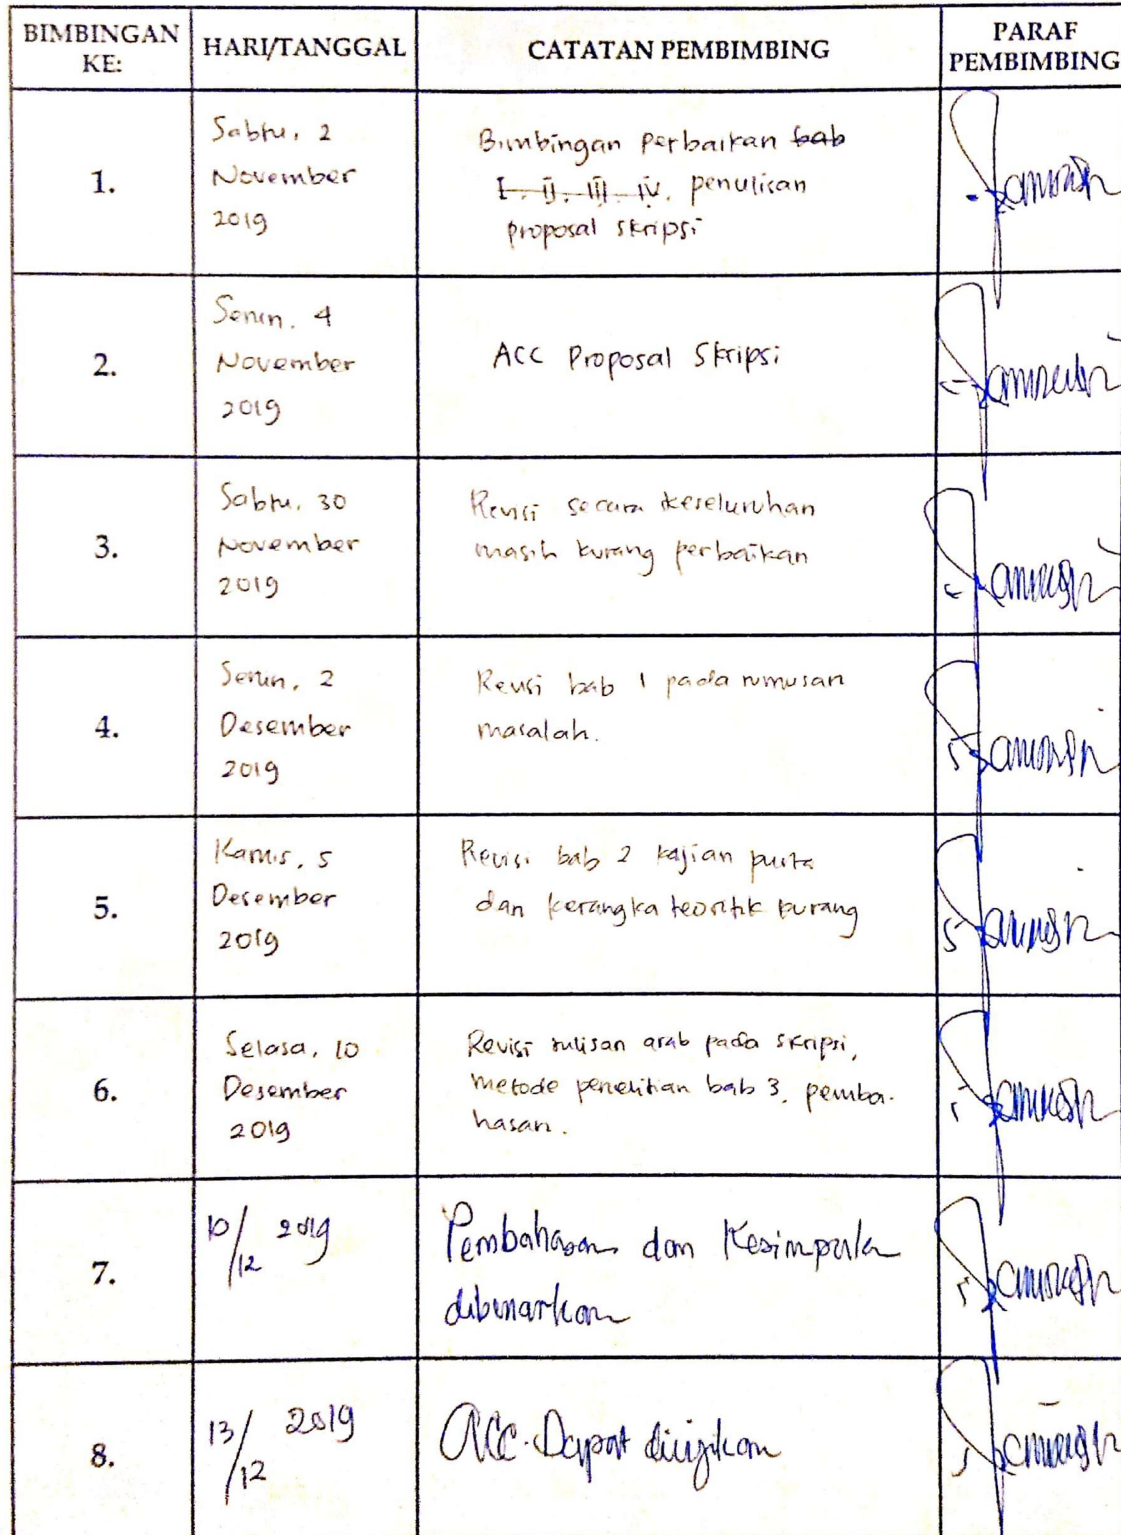 BIMBINGAN KE:
HARI/TANGGAL
CATATAN PEMBIMBING
PARAF PEMBIMBING
1.
Sabtu, 2
November
2019
Bimbingan perbaikan bab
I, II, III, IV, penulisan
proposal skripsi
2.
Senin, 4
November
2019
ACC Proposal Skripsi
3.
Sabtu, 30
November
2019
Revisi secara keseluruhan
masih kurang perbaikan
4.
Senin, 2
Desember
2019
Revisi bab 1 pada rumusan
masalah.
5.
Kamis, 5
Desember
2019
Revisi bab 2 kajian
dan kerangka teoritik kurang
6.
Selasa, 10
Desember
2019
Revisi tulisan arab pada skripsi,
metode penelitian bab 3, pemba-
hasan.
7.
10/12 2019
Pembahasan dan Kesimpula
dibenarkan
8.
13/12 2019
ACC. Dapat diujikan